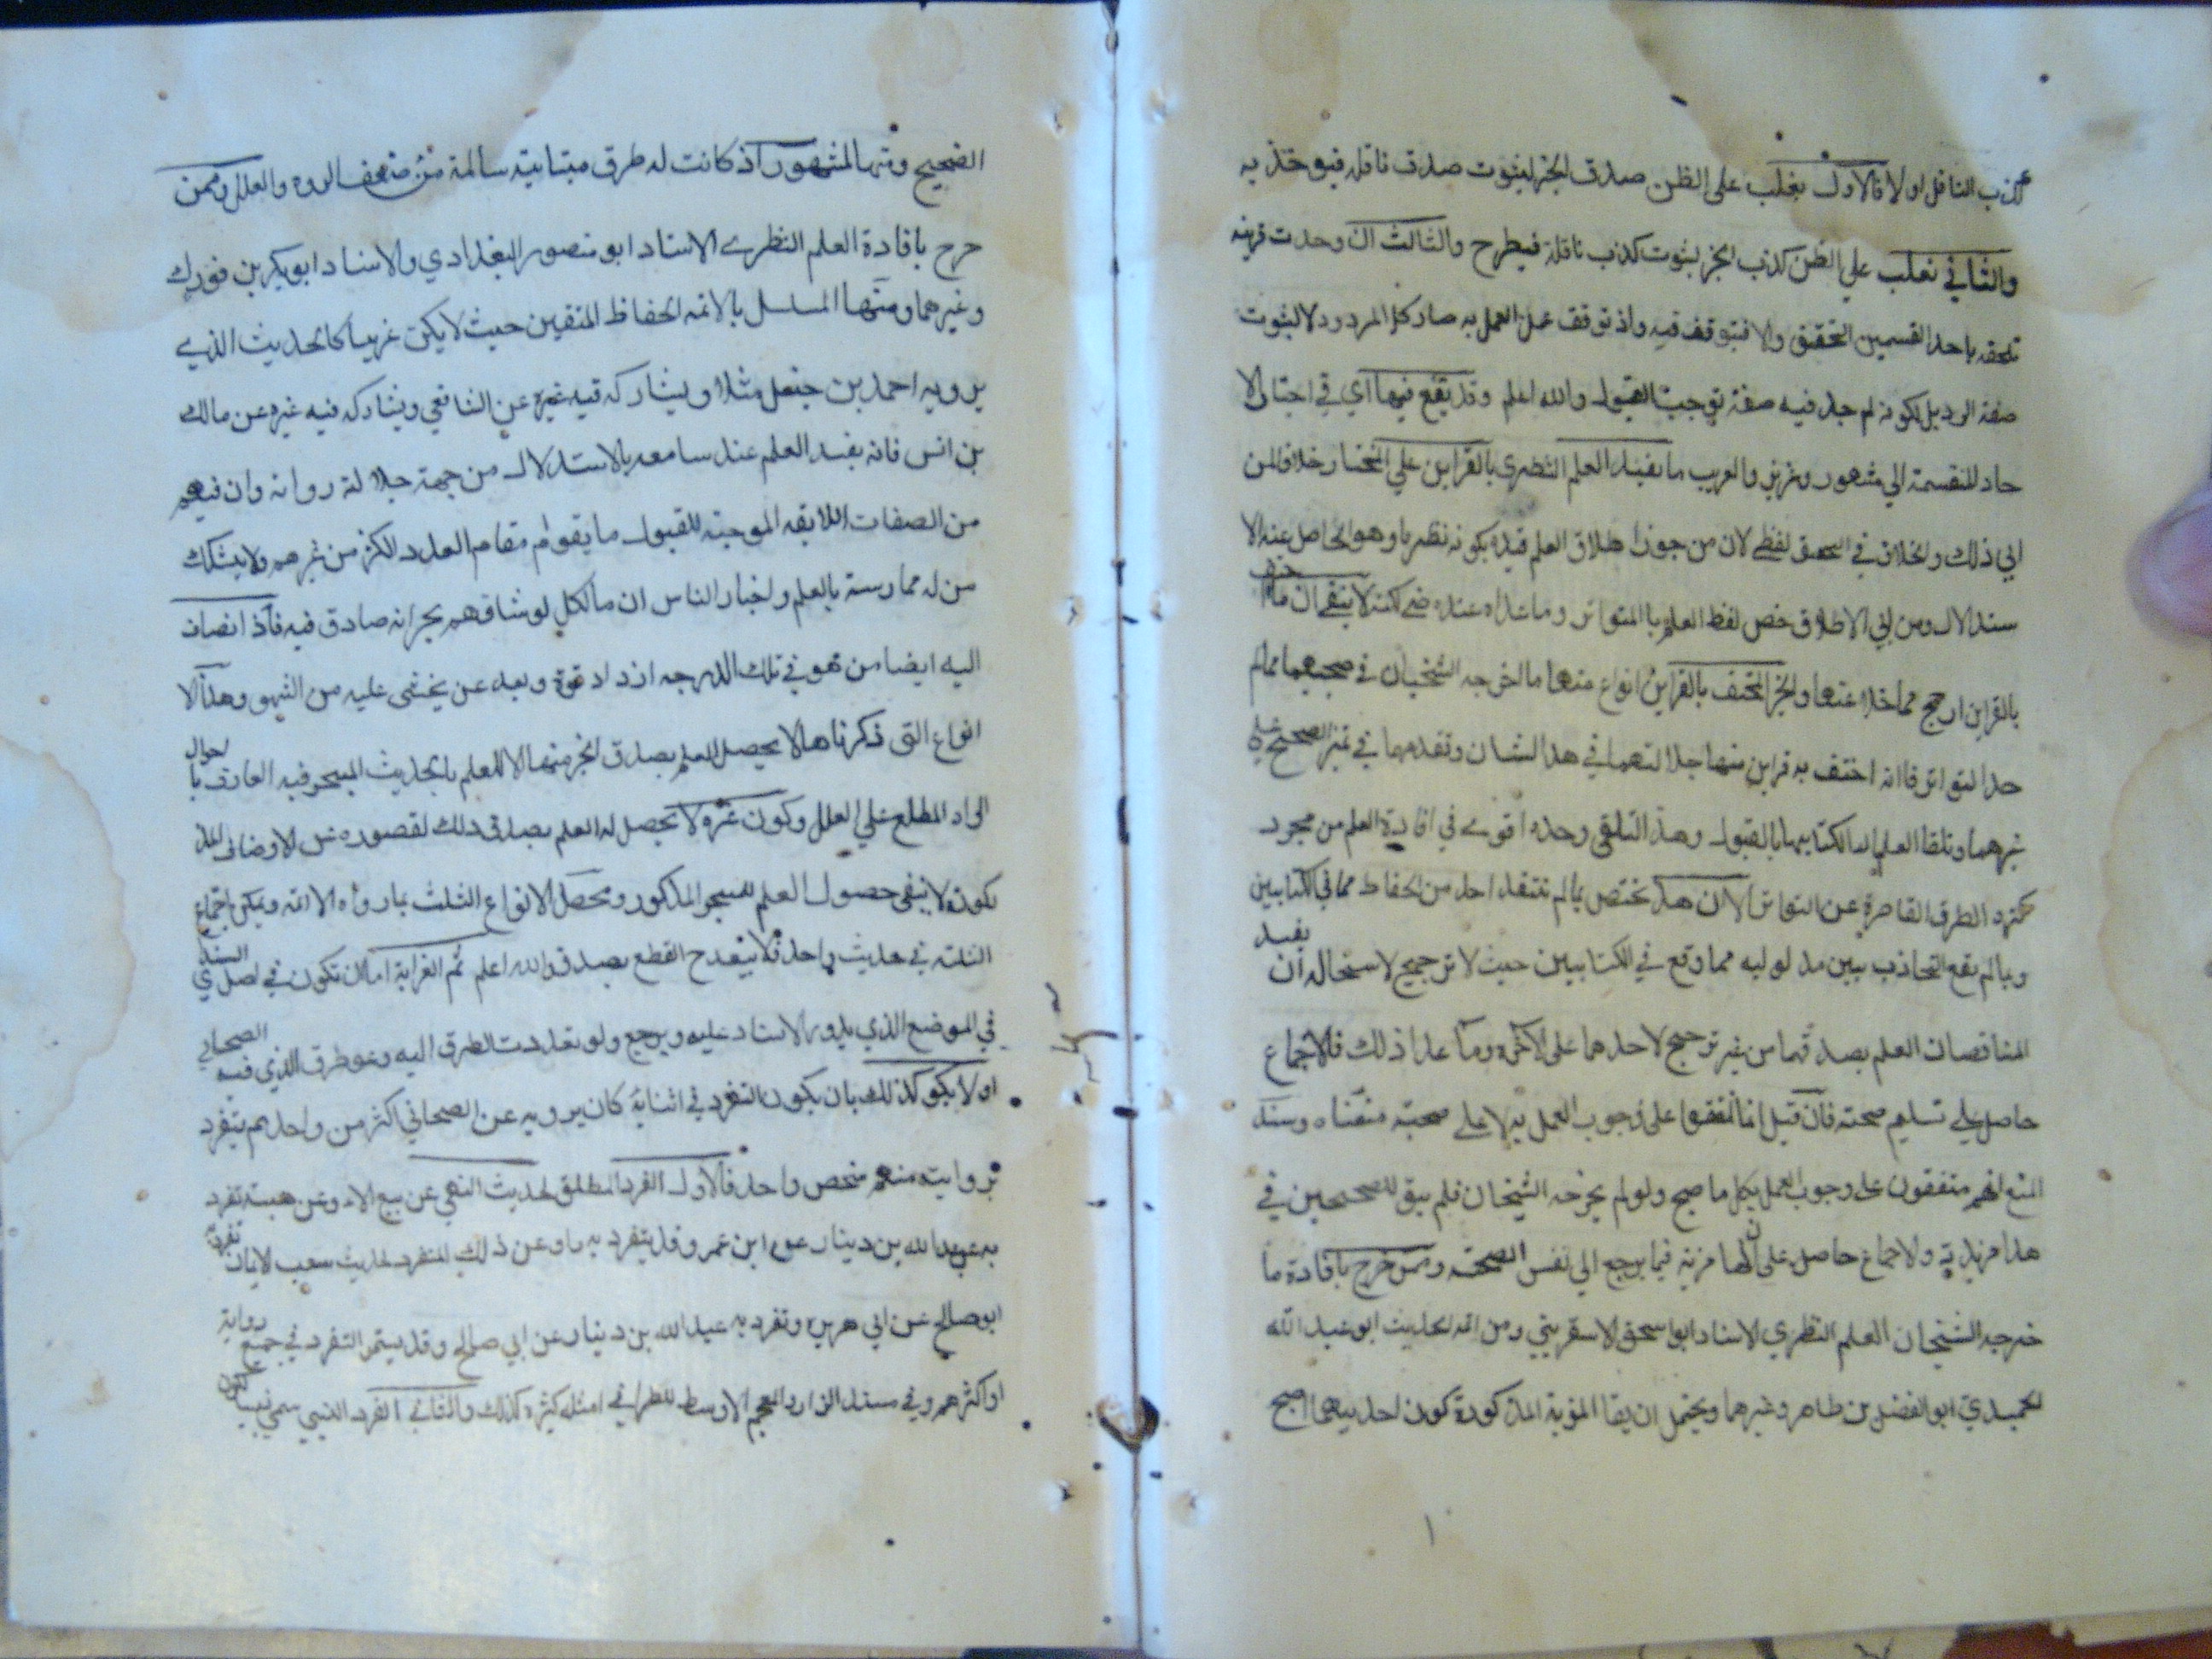 كذب الناقل اولا فالاول يغلب على الظن صدق الخبر لثبوت صدق ناقله فيوخذ به
والثاني تغلب علي الظن كذب الخبر لثبوت كذب ناقلة فيطرح والثالث ان وحدت قرينه
تلحقه باحد القسمين التحقيق والا فيتوقف فيه واذ توقف عن العمل به صار كل المردود لا لثبوت
صفة الرد بل لكونه لم جد فيه صفة توجب القبول والله اعلم وقد يقع فيها اي في اخبار الا
حاد المنقسمة الي مشهور وعزيز والغريب ما يفيد العلم النظري بالقراين علي المختار خلافا لمن
ابي ذلك والخلاف في التحقيق لفظي لان من جوز اطلاق العلم قيده بكونه نظريا وهو الحاصل عند الا
ستدلال ومن ابي الاطلاق خص لفظ العلم با المتواتر وما عداه عنده ظني لكنه لا ينفي ان ما حف
بالقراين ارجح مما خلا عنها والخبر المحتف بالقراين انواع منها ما اخرجه الشيخان في صحيحيهما مما لم
حد التواتر فاانه احتف به قراين منها جلالتهما في هدا الشان وتقدمهما في تميز الصحيح علي
غيرهما وتلقا العلما لكتابيهما بالقبول وهذ التلقي وحده اقوي في افادة العلم من مجرد
كثره الطرق القاصرة عن التواتر الا ان هذ يختص بما لم ينتقد احد من الحفاظ مما في الكتابين
وبما لم يقع التجاذب بين مدلوليه مما وقع في الكتابين حيث لا ترجيح لاستحاله ان يفيد
المتناقضان العلم بصدقهما من غير ترجيح لاحدهما على الاخره وما عدا ذلك فالاجماع
حاصل علي تسليم صحته فان قيل انما اتفقوا على وجوب العمل به لا على صحته منعناه وسند
المنع انهم متفقون على وجوب العمل بكل ما صح ولو لم يخرجه الشيخان فلم يبق للصحيحين في
هذا مزية ولاجماع حاصل على ان لهما مزية فيما يرجع الي نفس الصحته وممن خرج بافادة ما
خرجه الشيخان العلم النظري الاستاد ابو اسحق الاسفريني ومن ائمة الحديث ابو عبد الله
الحميدي ابو الفضل بن طاهر وغيرهما ويحتمل ان يقا المزية المذكورة كون احديثهما اصح
١
الصحيح ومنها المشهور اذ كانت له طرق متباينة سالمة من ضعف الروه والعلل وممن
خرج بافادة العلم النظري الاستاد ابو منصور البغدادي والاستاد ابو بكر بن فورك
وغيرهما ومنها المسلسل بالائمه الحفاظ المتقين حيث لا يكن غريبا كالحديث الذي
يرويه احمد بن حنبل مثلا ويشاركه فيه غيره عن الشافعي ويشاركه فيه غيره عن مالك
بن انس فانه يفيد العلم عند سامعه بالاستدلال من جهة جلالة رواته وان فيهم
من الصفات اللايقه الموجبة للقبول ما يقوم مقام العدد الكثر من غيرهم ولا يتشكك
من له ممارسة بالعلم واخبار الناس ان مالكل لو شافهم بخبر انه صادق فيه فاذ انضاف
اليه ايضا من هو في تلك الدرجه ازداد قوة وبعد عن يخشى عليه من السهو وهذ الا
انواع التى ذكرناها لا يحصل للعلم بصدق الخبر منها الا للعلم بالحديث المتبحر فيه العارف با حوال
الراد المطلع علي العلل وكون غيره لا يحصل له العلم بصدق ذلك لقصوره عن الاوصاف المذ
كورة لا ينفى حصول العلم للمتبحر المذكور ومحصل الانواع الثلث بما رواه الائمه ويمكن اجتماع
الثلثه في حديث واحد فلا يبعد ح القطع بصدقه والله اعلم ثم الغرابة اما ان تكون في اصل السند اي
في الموضع الذي يدور الاسناد عليه ويرجع ولو تعددت الطرق اليه وهو طرق الذي فيه الصحابي
او لا يكو كذلك بان يكون التفرد في اثنايه كان يرويه عن الصحابي اكثر من واحد ثم يتفرد
بروايته منهم شخص واحد فالاول الفرد المطلق لحديث النهي عن بيع الاء وعن هبته تفرد
به عبد الله بن دينار عن ابن عمر وقد يتفرد به راو عن ذلك المتفرد لحديث شعب الايمان تفرد به
ابو صالح عن ابي هريره وتفرد به عبد الله بن دينار عن ابي صالح وقد يستمر التفرد في جميع رواية
او اكثرهم وفي مسند البزار والمعجم الاوسط للطبراني امثله كثيره لذلك والثاني الفرد النسبي سمي نسبيا لكون